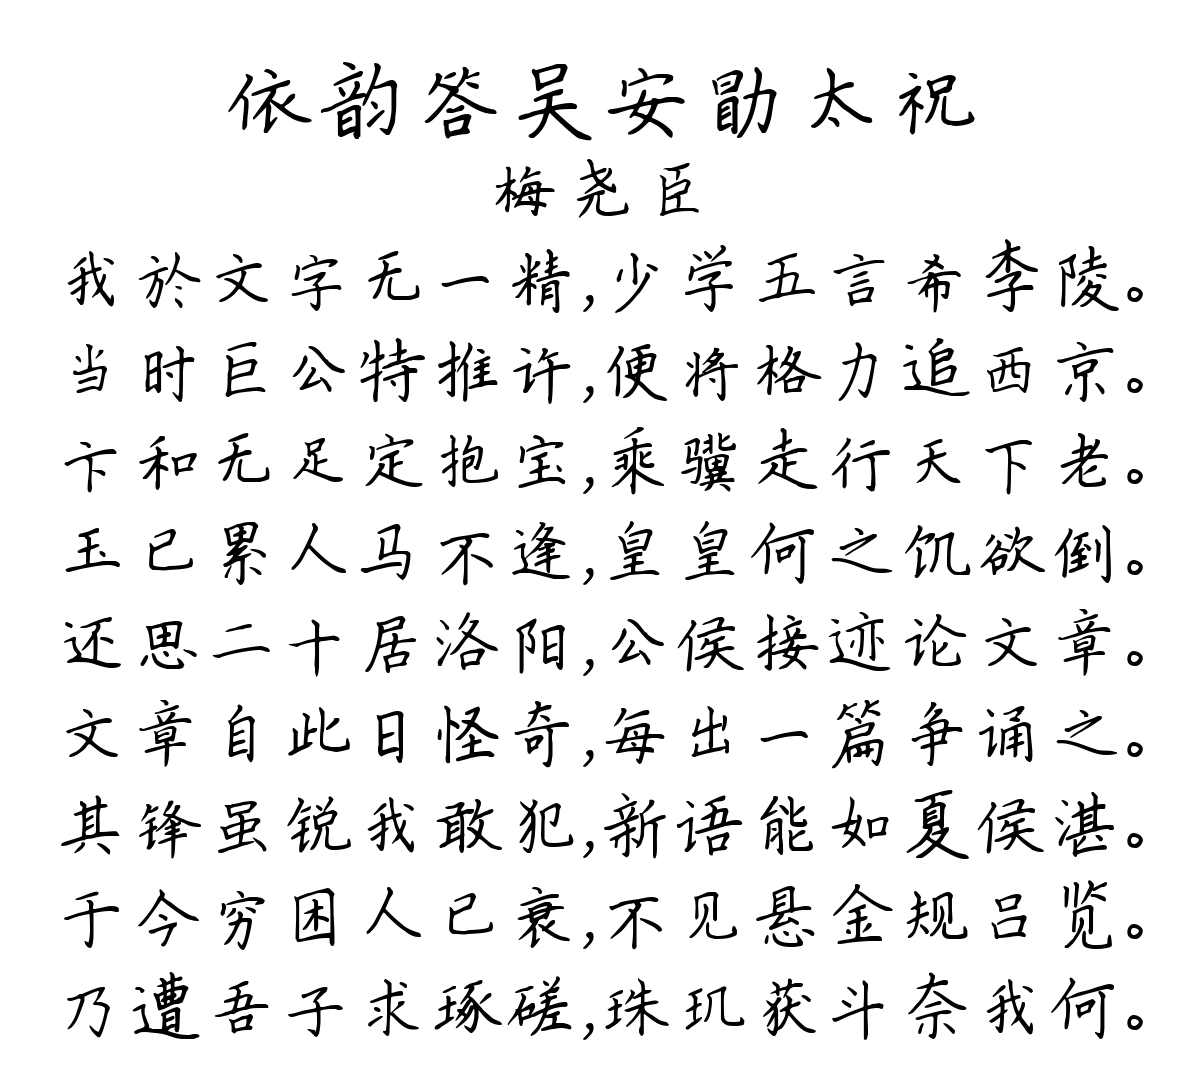 依韵答吴安勖太祝
梅尧臣
我於文字无一精,少学五言希李陵。
当时巨公特推许,便将格力追西京。
卞和无足定抱宝,乘骥走行天下老。
玉已累人马不逢,皇皇何之饥欲倒。
还思二十居洛阳,公侯接迹论文章。
文章自此日怪奇,每出一篇争诵之。
其锋虽锐我敢犯,新语能如夏侯湛。
于今穷困人已衰,不见悬金规吕览。
乃遭吾子求琢磋,珠玑获斗奈我何。